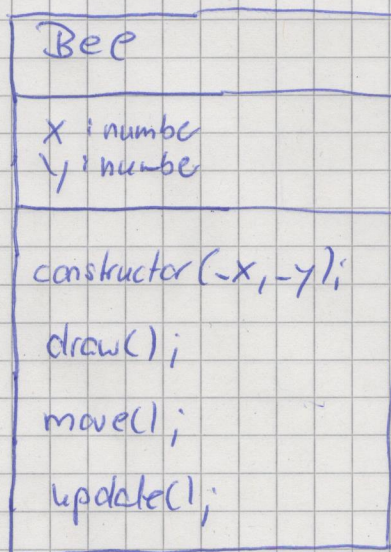 Bee
x : number
y : number
constructor(_x, _y);
draw();
move();
update();